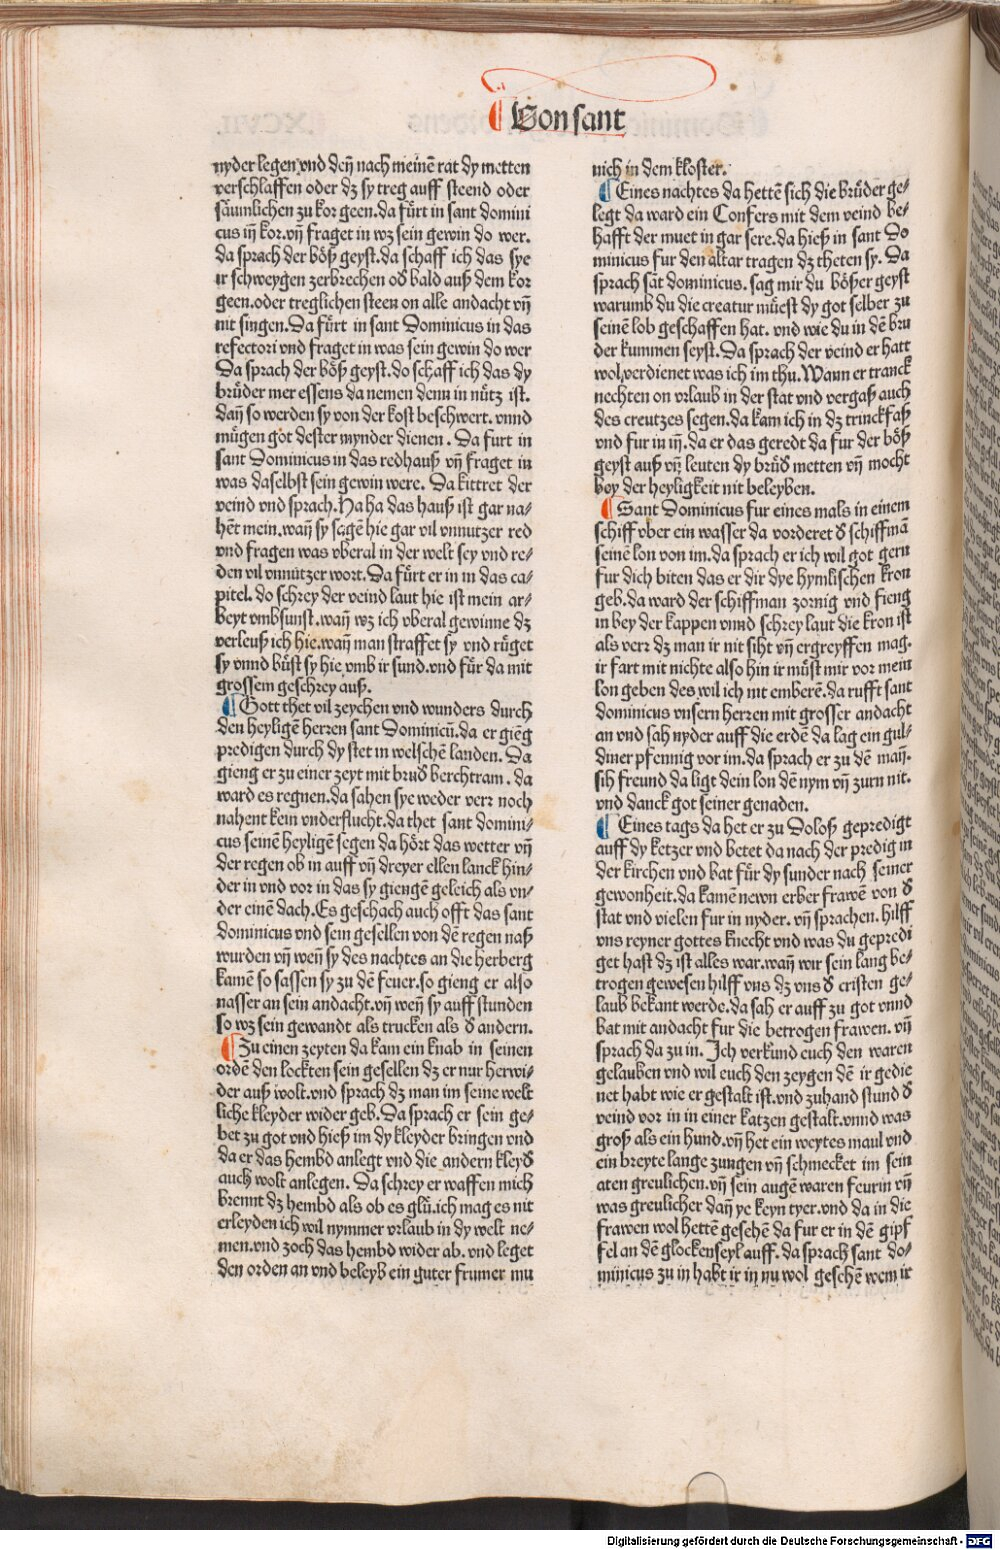 Von sant
nyder legen vnd deñ nach meinē rat dy metten
verschlaffen oder dz sy treg auff steend oder
säumlichen zu kor geen. da fürt in sant domini
cus iñ kor. vñ fraget in wz sein gewin do wer.
da sprach der böß geyst. da schaff ich das sye
ir schweygen zerbrechen od bald auß dem kor
geen. oder treglichen steen on alle andacht vñ
nit singen. Da fürt in sant Dominicus in das
refectori vnd fraget in was sein gewin do wer
Da sprach der böß geyst. do schaff ich das dy
brüder mer essens da nemen denn in nütz ist.
dañ so werden sy von der kost beschwert. vnnd
mügen got dester mynder dienen. Da furt in
sant Dominicus in das redhauß vñ fraget in
was daselbst sein gewin were. Da kittret der
veind vnd sprach. Ha ha das hauß ist gar na-
hēt mein. wañ sy sagē hie gar vil vnnutzer red
vnd fragen was vberal in der welt sey vnd re-
den vil vnnützer wort. Da fürt er in in das ca-
pitel. do schrey der veind laut hie ist mein ar-
beyt vmbsunst. wañ wz ich vberal gewinne dz
verleuß ich hie. wañ man straffet sy vnd rüget
sy vnnd büst sy hie vmb ir sund. vnd für da mit
grossem geschrey auß.
Gott thet vil zeychen vnd wunders durch
den heyligē herren sant Dominicū. da er gieng
predigen durch dy stet in welschē landen. Da
gieng er zu einer zeyt mit brud berchtram. da
ward es regnen. da sahen sye weder verr noch
nahent kein vnderflucht. da thet sant domini-
cus seinē heyligē segen da hört das wetter vñ
der regen ob in auff vñ dreyer ellen lanck hin-
der in vnd vor in das sy giengē geleich als vn-
der einē dach. Es geschach auch offt das sant
dominicus vnd sein gesellen von dē regen naß
wurden vñ weñ sy des nachtes an die herberg
kamē so sassen sy zu dē feuer. so gieng er also
nasser an sein andacht. vñ weñ sy auff stunden
so wz sein gewandt als trucken als d andern.
Zu einen zeyten da kam ein knab in seinen
ordē den lockten sein gesellen dz er nur herwi-
der auß wolt. vnd sprach dz man im seine welt
liche kleyder wider geb. Da sprach er sein ge-
bet zu got vnd hieß im dy kleyder bringen vnd
da er das hembd anlegt vnd die andern kleyd
auch wolt anlegen. Da schrey er waffen mich
brennt dz hembd als ob es glü. ich mag es nit
erleyden ich wil nymmer vrlaub in dy welt ne-
men. vnd zoch das hembd wider ab. vnd leget
den orden an vnd beleyb ein guter frumer mü
nich in dem kloster.
Eines nachtes da hettē sich die brüder ge-
legt da ward ein Confers mit dem veind be-
hafft der muet in gar sere. da hieß in sant Do
minicus fur den altar tragen dz theten sy. Da
sprach sāt dominicus. sag mir du bößer geyst
warumb du die creatur müest dy got selber zu
seinē lob geschaffen hat. vnd wie du in dē bru
der kummen seyst. Da sprach der veind er hatt
wol verdienet was ich im thu. Wann er tranck
nechten on vrlaub in der stat vnd vergaß auch
des creutzes segen. da kam ich in dz trinckfaß
vnd fur in iñ. da er das geredt da fur der böß
geyst auß vñ leuten dy brüd metten vñ mocht
bey der heyligkeit nit beleyben.
Sant Dominicus fur eines mals in einem
schiff vber ein wasser da vorderet d schiffmā
seinē lon von im. da sprach er ich wil got gern
fur dich biten das er dir dye hymlischen kron
geb. da ward der schiffman zornig vnd fieng
in bey der kappen vnnd schrey laut die kron ist
als verr dz man ir nit siht vñ ergreyffen mag.
ir fart mit nichte also hin ir müst mir vor mein
lon geben des wil ich nit emberē. da rufft sant
dominicus vnsern herren mit grosser andacht
an vnd sah nyder auff die erdē da lag ein gul-
diner pfennig vor im. da sprach er zu dē mañ.
sih freund da ligt dein lon dē nym vñ zurn nit.
vnd danck got seiner genaden.
Eines tags da het er zu Doloß gepredigt
auff dy ketzer vnd betet da nach der predig in
der kirchen vnd bat für dy sunder nach seiner
gewonheit. da kamē newn erber frawē von d
stat vnd vielen fur in nyder. vñ sprachen. hilff
vns reyner gottes knecht vnd was du gepredi
get hast dz ist alles war. wañ wir sein lang be-
trogen gewesen hilff vns dz vns d cristen ge-
laub bekant werde. da sah er auff zu got vnnd
bat mit andacht fur die betrogen frawen. vñ
sprach da zu in. Ich verkünd euch den waren
gelauben vnd wil euch den zeygen dē ir gedie
net habt wie er gestalt ist. vnd zuhand stund d
veind vor in in einer katzen gestalt. vnnd was
groß als ein hund. vñ het ein weytes maul vnd
ein breyte lange zungen vñ schmecket im sein
aten greulichen. vñ sein augē waren feurin vñ
was greulicher dañ ye keyn tyer. vnd da in die
frawen wol hettē gesehē da fur er in dē gipf
fel an dē glockenseyl auff. da sprach sant do-
minicus zu in habt ir in nu wol gesehē wem ir
Digitalisierung gefördert durch die Deutsche Forschungsgemeinschaft - DFG